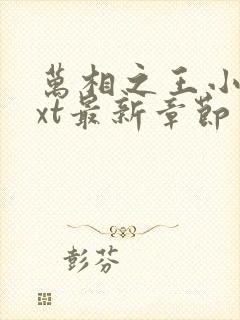 萬相之王小
xt最新章節
彭芬